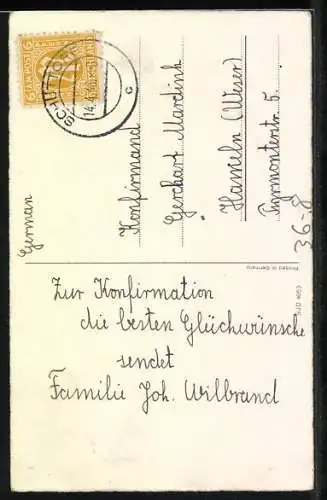 German
Konfirmand
Gerhart Mardink
Hameln (Weser)
Pyrmonterstr 5.
36-8
Printed in Germany
Zur Konfirmation
die besten Glückwünsche
sendet
Familie Joh. Wilbrand